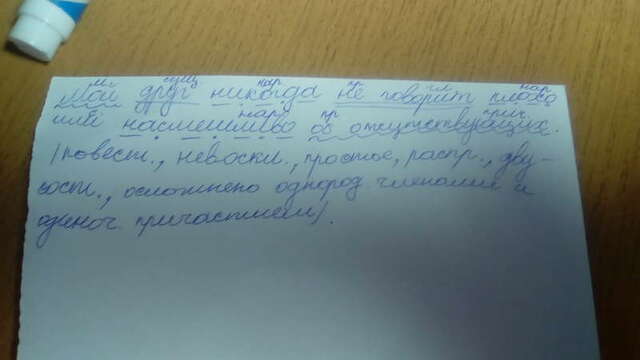 м. сущ нар пр гл нар
Мой друг никогда не говорит плохо
нар пр прич
или насмешливо об отсутствующих.
(повест., невоскл., простое, распр., дву-
сост., осложнено однород членами и
одиноч. причастием).